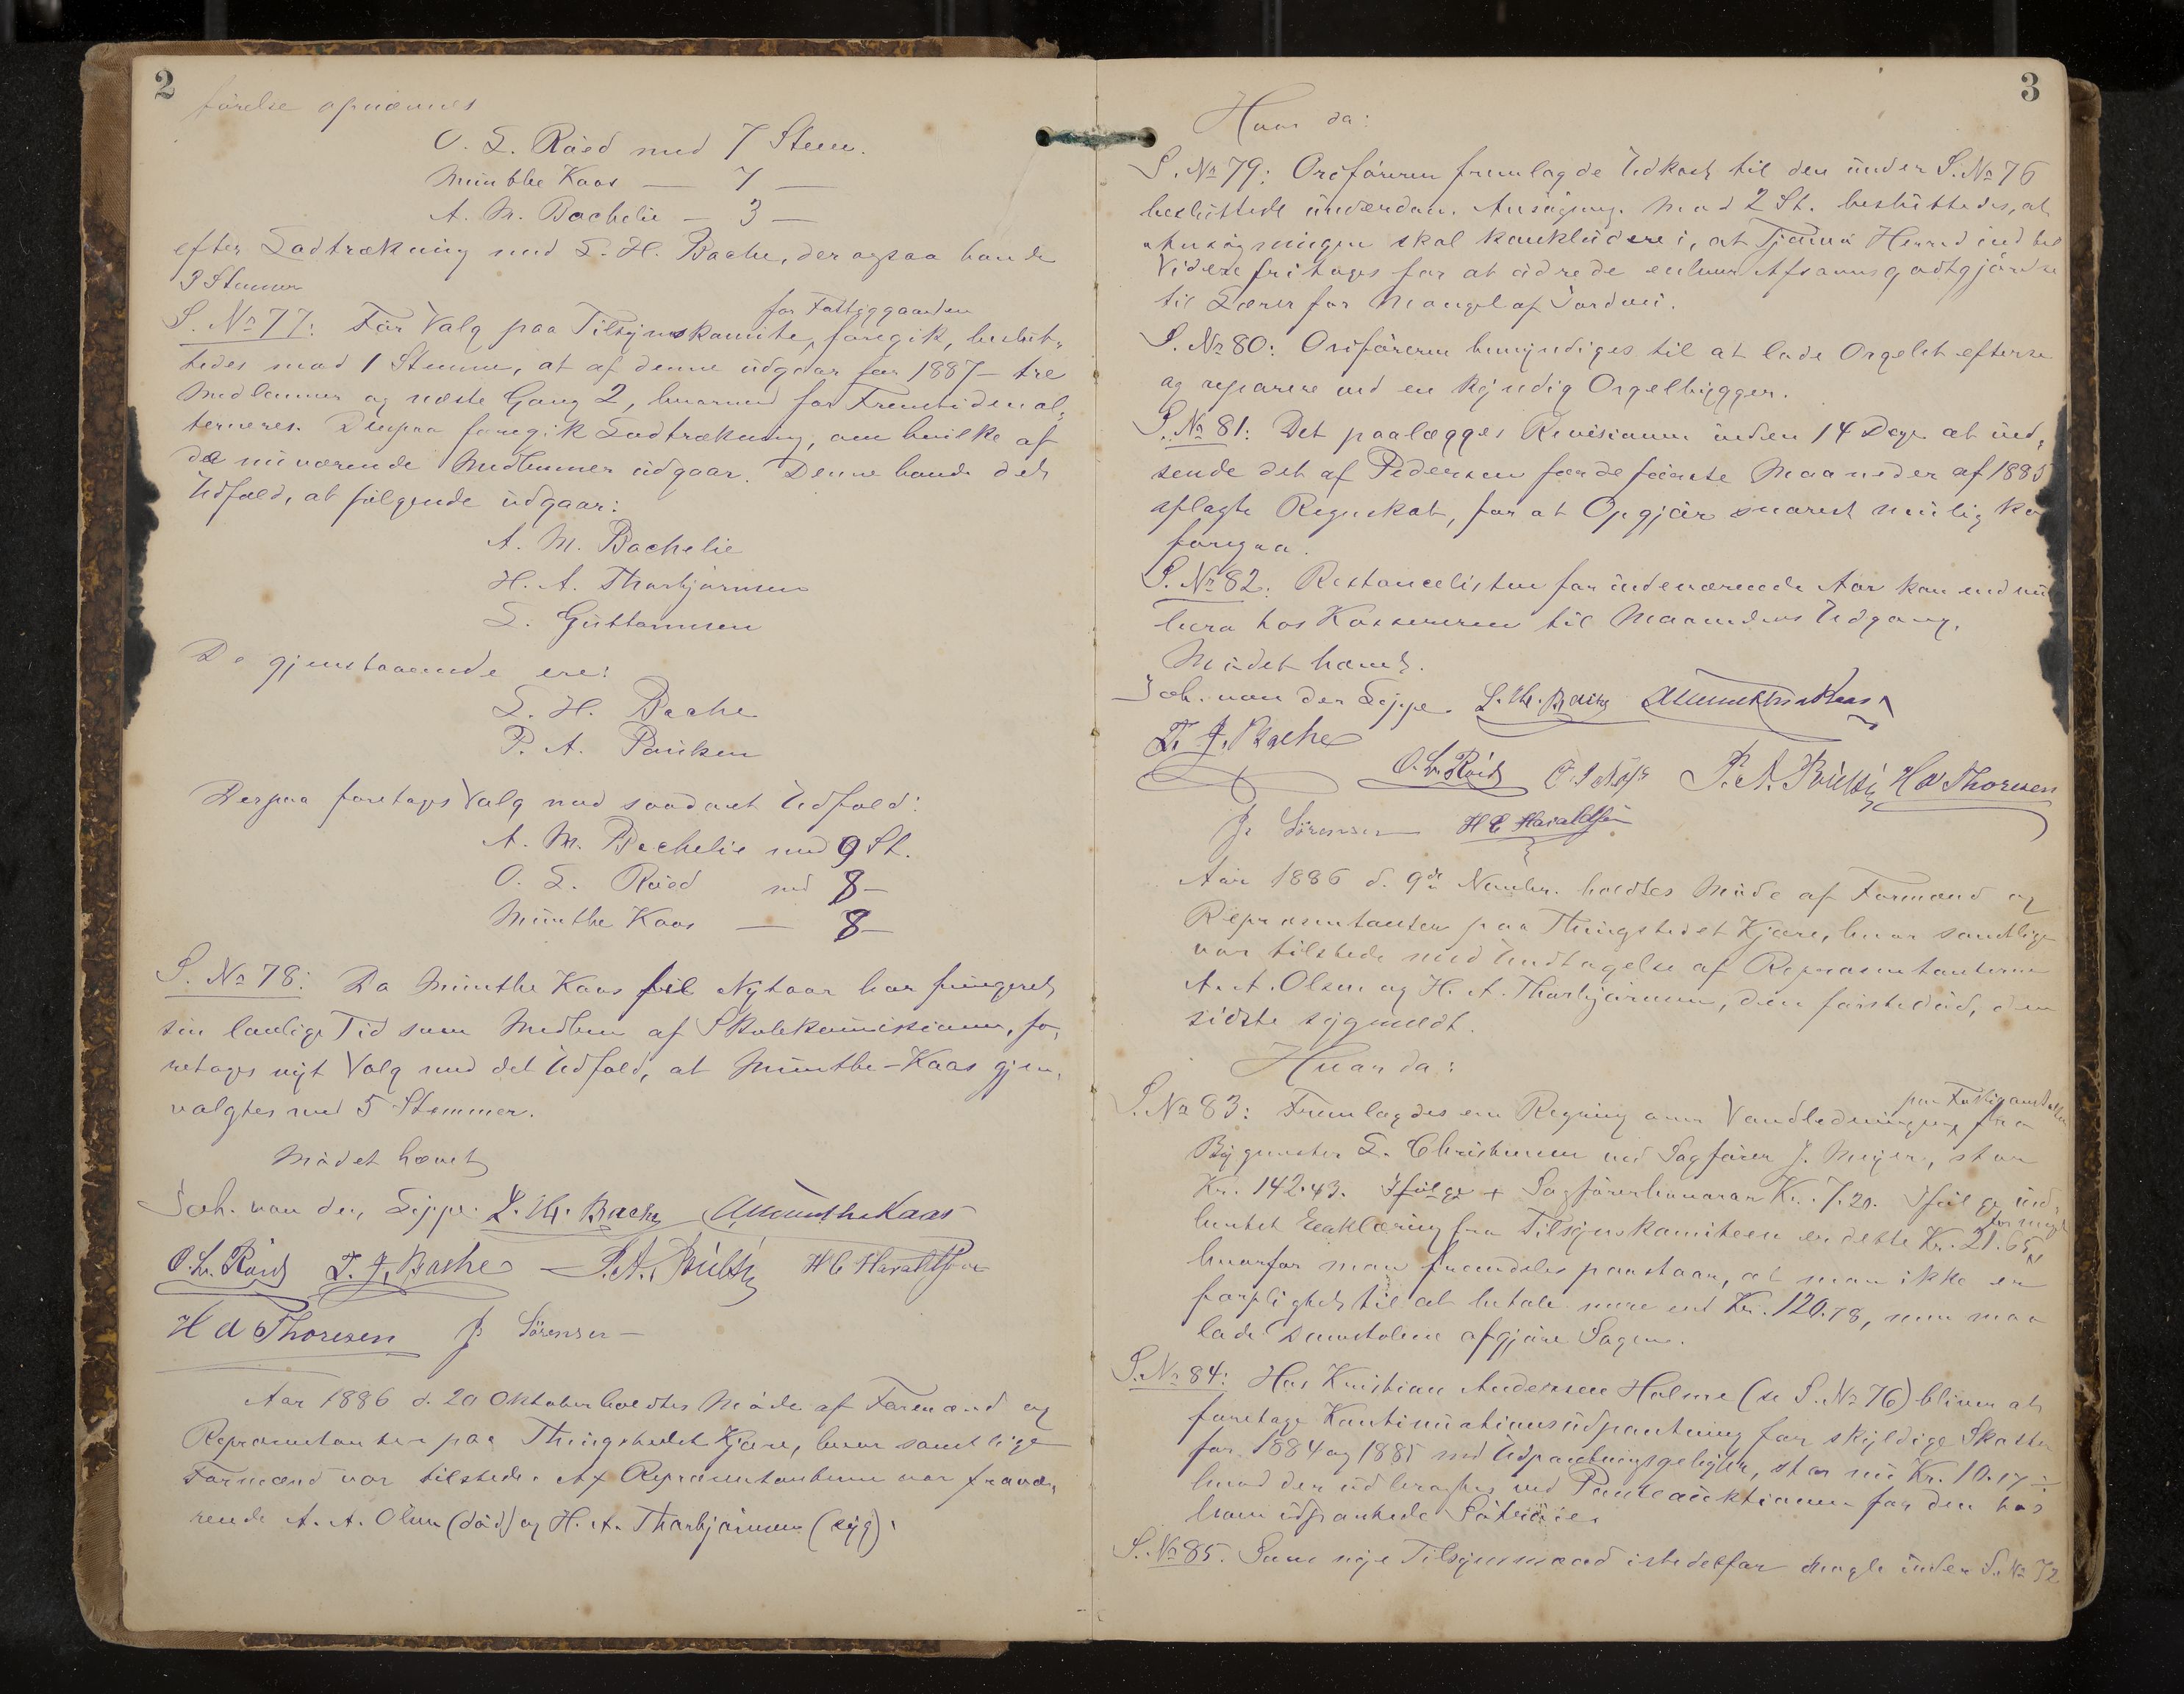 2
førelse opnævnes
O. L. Røed med 7 Stem.
Münthe Kaas — 7 —
A. M. Bachelie — 3 —
efter Lodtrækning med L. H. Bache, der ogsaa havde
3 Stemmer
for Fattiggaarden
S. No 77: Før Valg paa Tilsynskomite, foregik, beslut-
tedes mod 1 Stemme, at af denne udgaar for 1887 – tre
Medlemmer og næste Gang 2, hvormed for Fremtiden al-
terneres. Derpaa foregik Lodtrækning, om hvilke af
de nuværende Medlemmer udgaar. Denne havde det
Udfald, at følgende udgaar:
A. M. Bachelie
H. A. Thorbjørnsen
L. Guttormsen
De gjenstaaende ere:
L. H. Bache
P. A. Poulsen
Derpaa foretages Valg med saadant Udfald:
A. M. Bachelie med 9 St.
O. L. Røed med 8 –
Münthe Kaas — 8 –
S. No 78: Da Münthe Kaas til Nytaar har fungeret
sin lovlige Tid som Medlem af Skolekommissionen, fo-
retages nyt Valg med det Udfald, at Münthe-Kaas gjen-
valgtes med 5 Stemmer.
Mødet hævet
Joh. von der Lippe. L. H. Bache AMuntheKaas
O. L. Röed T. J. Bache P. A. Poulsen H C Haraldsen
H A Thoresen J. Sörensen
Aar 1886 d. 20 Oktober holdtes Møde af Formænd og
Repræsentanter paa Thingstedet Kjære, hvor samtlige
Formænd var tilstede. Af Repræsentanterne var fravæ-
rende A. A. Olsen (død) og H. A. Thorbjørnsen (syg).
3
Hvor da:
S. No 79: Ordføreren fremlagde Udkast til den under S. No 76
besluttede underdan. Ansøgning. Mod 2 St. besluttedes, at
Ansøgningen skal konkludere i, at Tjømø Herred ind til
Videre fritages for at udrede enhver Afsavnsgodtgjørelse
til Lærer for Mangel af Jordvei.
S. No 80: Ordføreren bemyndiges til at lade Orgelet efterse
og reparere ved en kyndig Orgelbygger.
S. No 81: Det paalægges Revisionen inden 14 Dage at ind-
sende det af Pedersen for de første Maaneder af 1885
aflagte Regnskab, for at Opgjør snarest mulig ka
foregaa.
S. No 82: Restancelisten for indeværende Aar kan endnu
bero hos Kassereren til Maanedens Udgang.
Mødet hævet.
Joh. von der Lippe. L. H. Bache AMuntheKaas
T. J. Bache
O. L. Röed P. A. Poulsen H A Thoresen
J. Sörensen H C Haraldsen
Aar 1886 d. 9de Novbr. holdtes Møde af Formænd og
Repræsentanter paa Thingstedet Kjære, hvor samtlige
var tilstede med Undtagelse af Repræsentanterne
A. A. Olsen og H. A. Thorbjørnsen, den første død, den
sidste sygmeldt.
Hvor da:
paa Fattiganstalten
S. No 83: Fremlagdes en Regning over Vandledningen fra
Bygmester L. Christensen ved Sagfører J. Meyer, stor
Kr. 142.43. Ifølge + Sagførerhonorar Kr. 7.20. Ifølge ind-
hentet Erklæring fra Tilsynskomiteen er dette Kr. 21.65 for meget
hvorfor man fremdeles paastaar, at man ikke er
forpligtet til at betale mere end Kr. 120.78, men maa
lade Domstolene afgjøre Sagen.
S. No 84: Hos Kristian Andersen Holme (se S. No 76) bliver at
foretage Kontinuationsudpantning for skyldige Skatter
for 1884 og 1885 med Udpantningsgebyr, stor nu Kr. 10.17 ÷
hvad der udbragtes ved Panteauktionen for den hos
ham udpantede
S. No 85. Som nye Tilsynsmænd istedetfor de under S. No 72